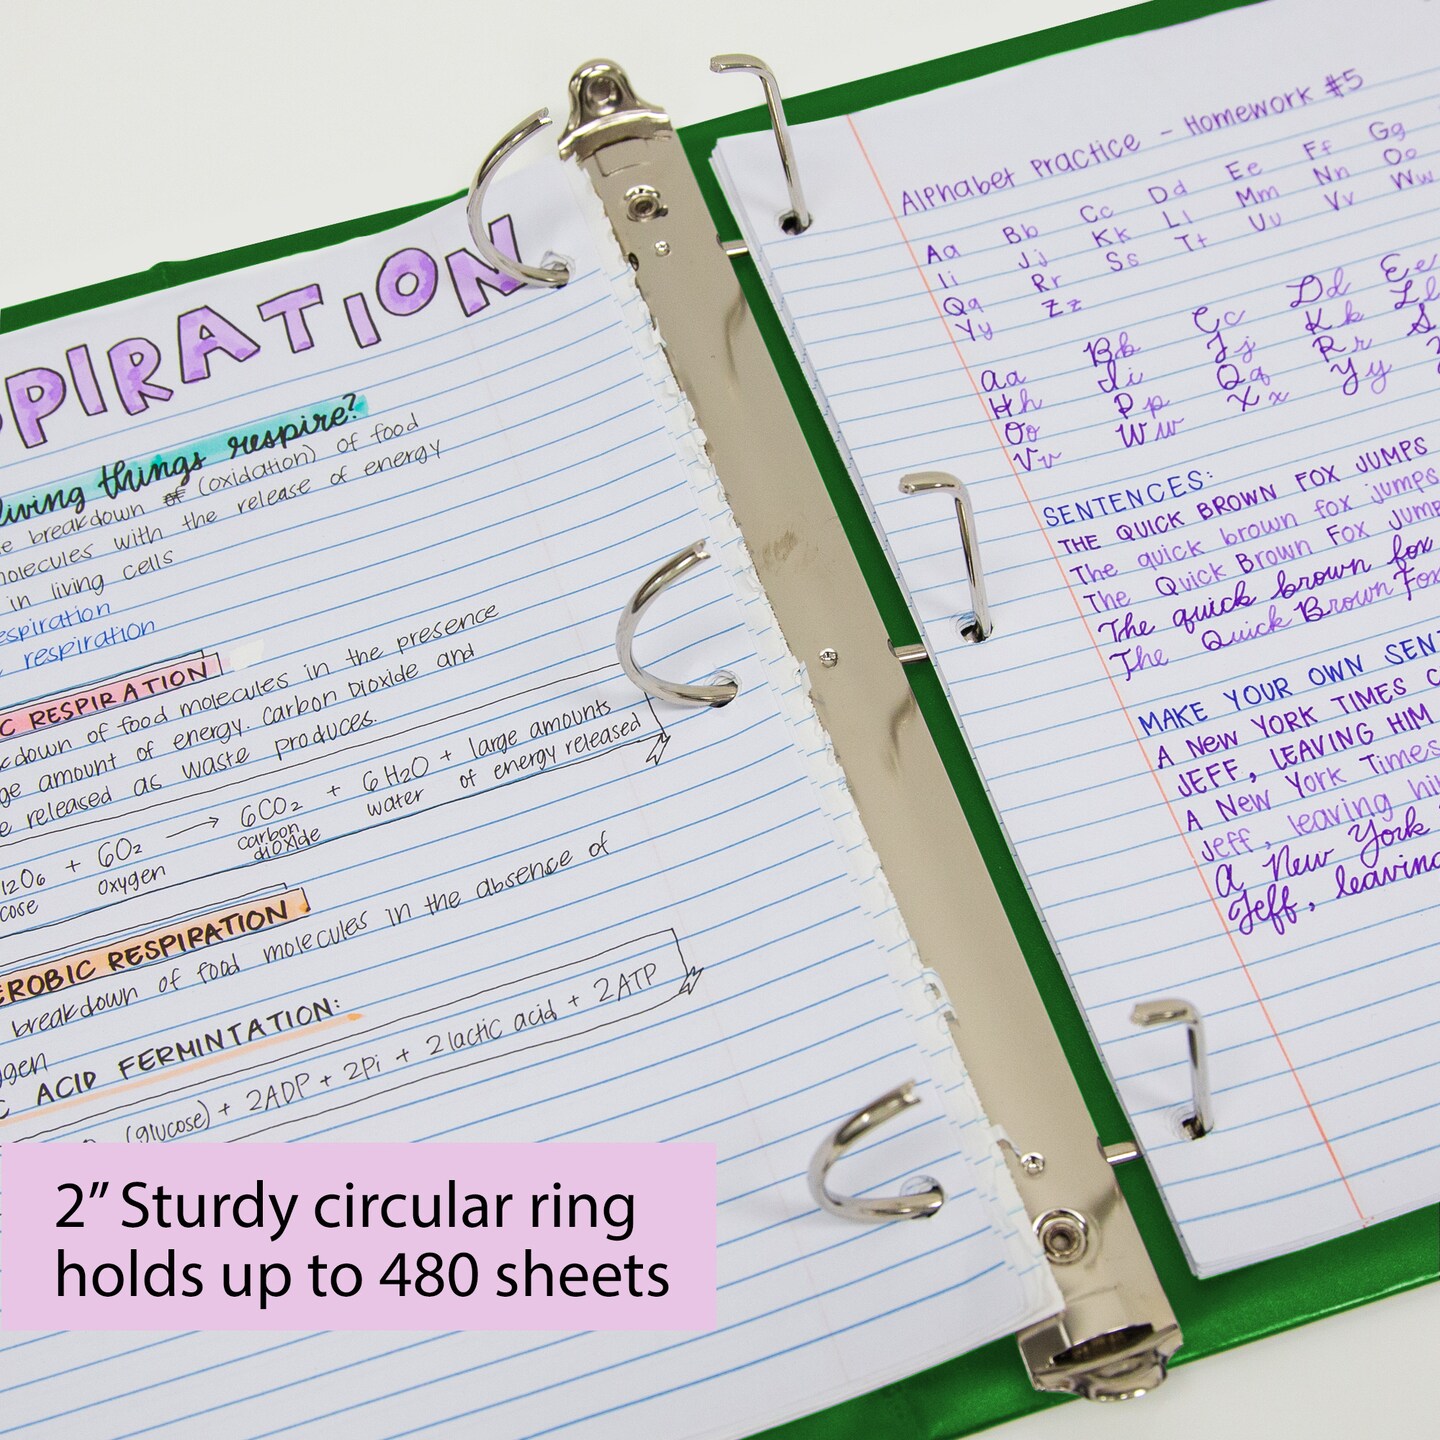 PIRATION
living things respire?
breakdown of (oxidation) of food
molecules with the release of energy
in living cells
respiration
respiration
C RESPIRATION
kdown of food molecules in the presence
ge amount of energy. Carbon Dioxide and
e released as waste produces.
12O6 + 6O2 → 6CO2 + 6H2O + large amounts
cose oxygen carbon dioxide water of energy released
EROBIC RESPIRATION
breakdown of food molecules in the absence of
gen
C ACID FERMINTATION:
(glucose) + 2ADP + 2Pi + 2 lactic acid + 2ATP
2” Sturdy circular ring
holds up to 480 sheets
Alphabet Practice - Homework #5
Aa Bb Cc Dd Ee Ff Gg
Ii Jj Kk Ll Mm Nn Oo
Qq Rr Ss Tt Uu Vv Ww
Yy Zz
Aa Bb Cc Dd Ee
Hh Ii Jj Kk Ll
Oo Pp Qq Rr S
Vv Ww Xx Yy
SENTENCES:
THE QUICK BROWN FOX JUMPS
The quick brown fox jumps
The Quick Brown Fox Jump
The quick brown fox
The Quick Brown Fox
MAKE YOUR OWN SENT
A NEW YORK TIMES C
JEFF, LEAVING HIM
A New York Times
Jeff, leaving hi
A New York
Jeff, leaving